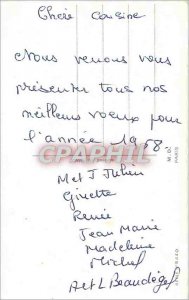 Chère Cousine
Nous venons vous
présenter tous nos
meilleurs voeux pour
l'année 1968.
CARTE-PARK
M et J Julien
Ginette
Renée
Jean Marie
Madeleine
Michel
A et L